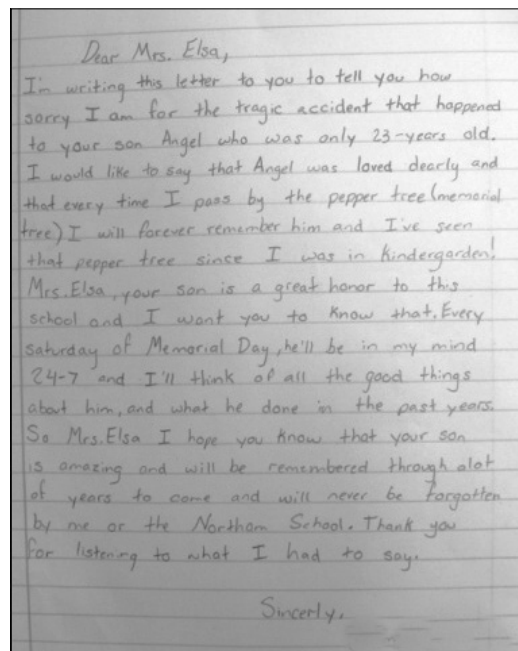 Dear Mrs. Elsa,
I'm writing this letter to you to tell you how
sorry I am for the tragic accident that happened
to your son Angel who was only 23-years old.
I would like to say that Angel was loved dearly and
that every time I pass by the pepper tree (memorial
tree) I will forever remember him and I've seen
that pepper tree since I was in Kindergarden!
Mrs. Elsa, your son is a great honor to this
school and I want you to know that. Every
saturday of Memorial Day, he'll be in my mind
24-7 and I'll think of all the good things
about him, and what he done in the past years.
So Mrs. Elsa I hope you know that your son
is amazing and will be remembered through alot
of years to come and will never be forgotten
by me or the Northam School. Thank you
for listening to what I had to say.
Sincerly,